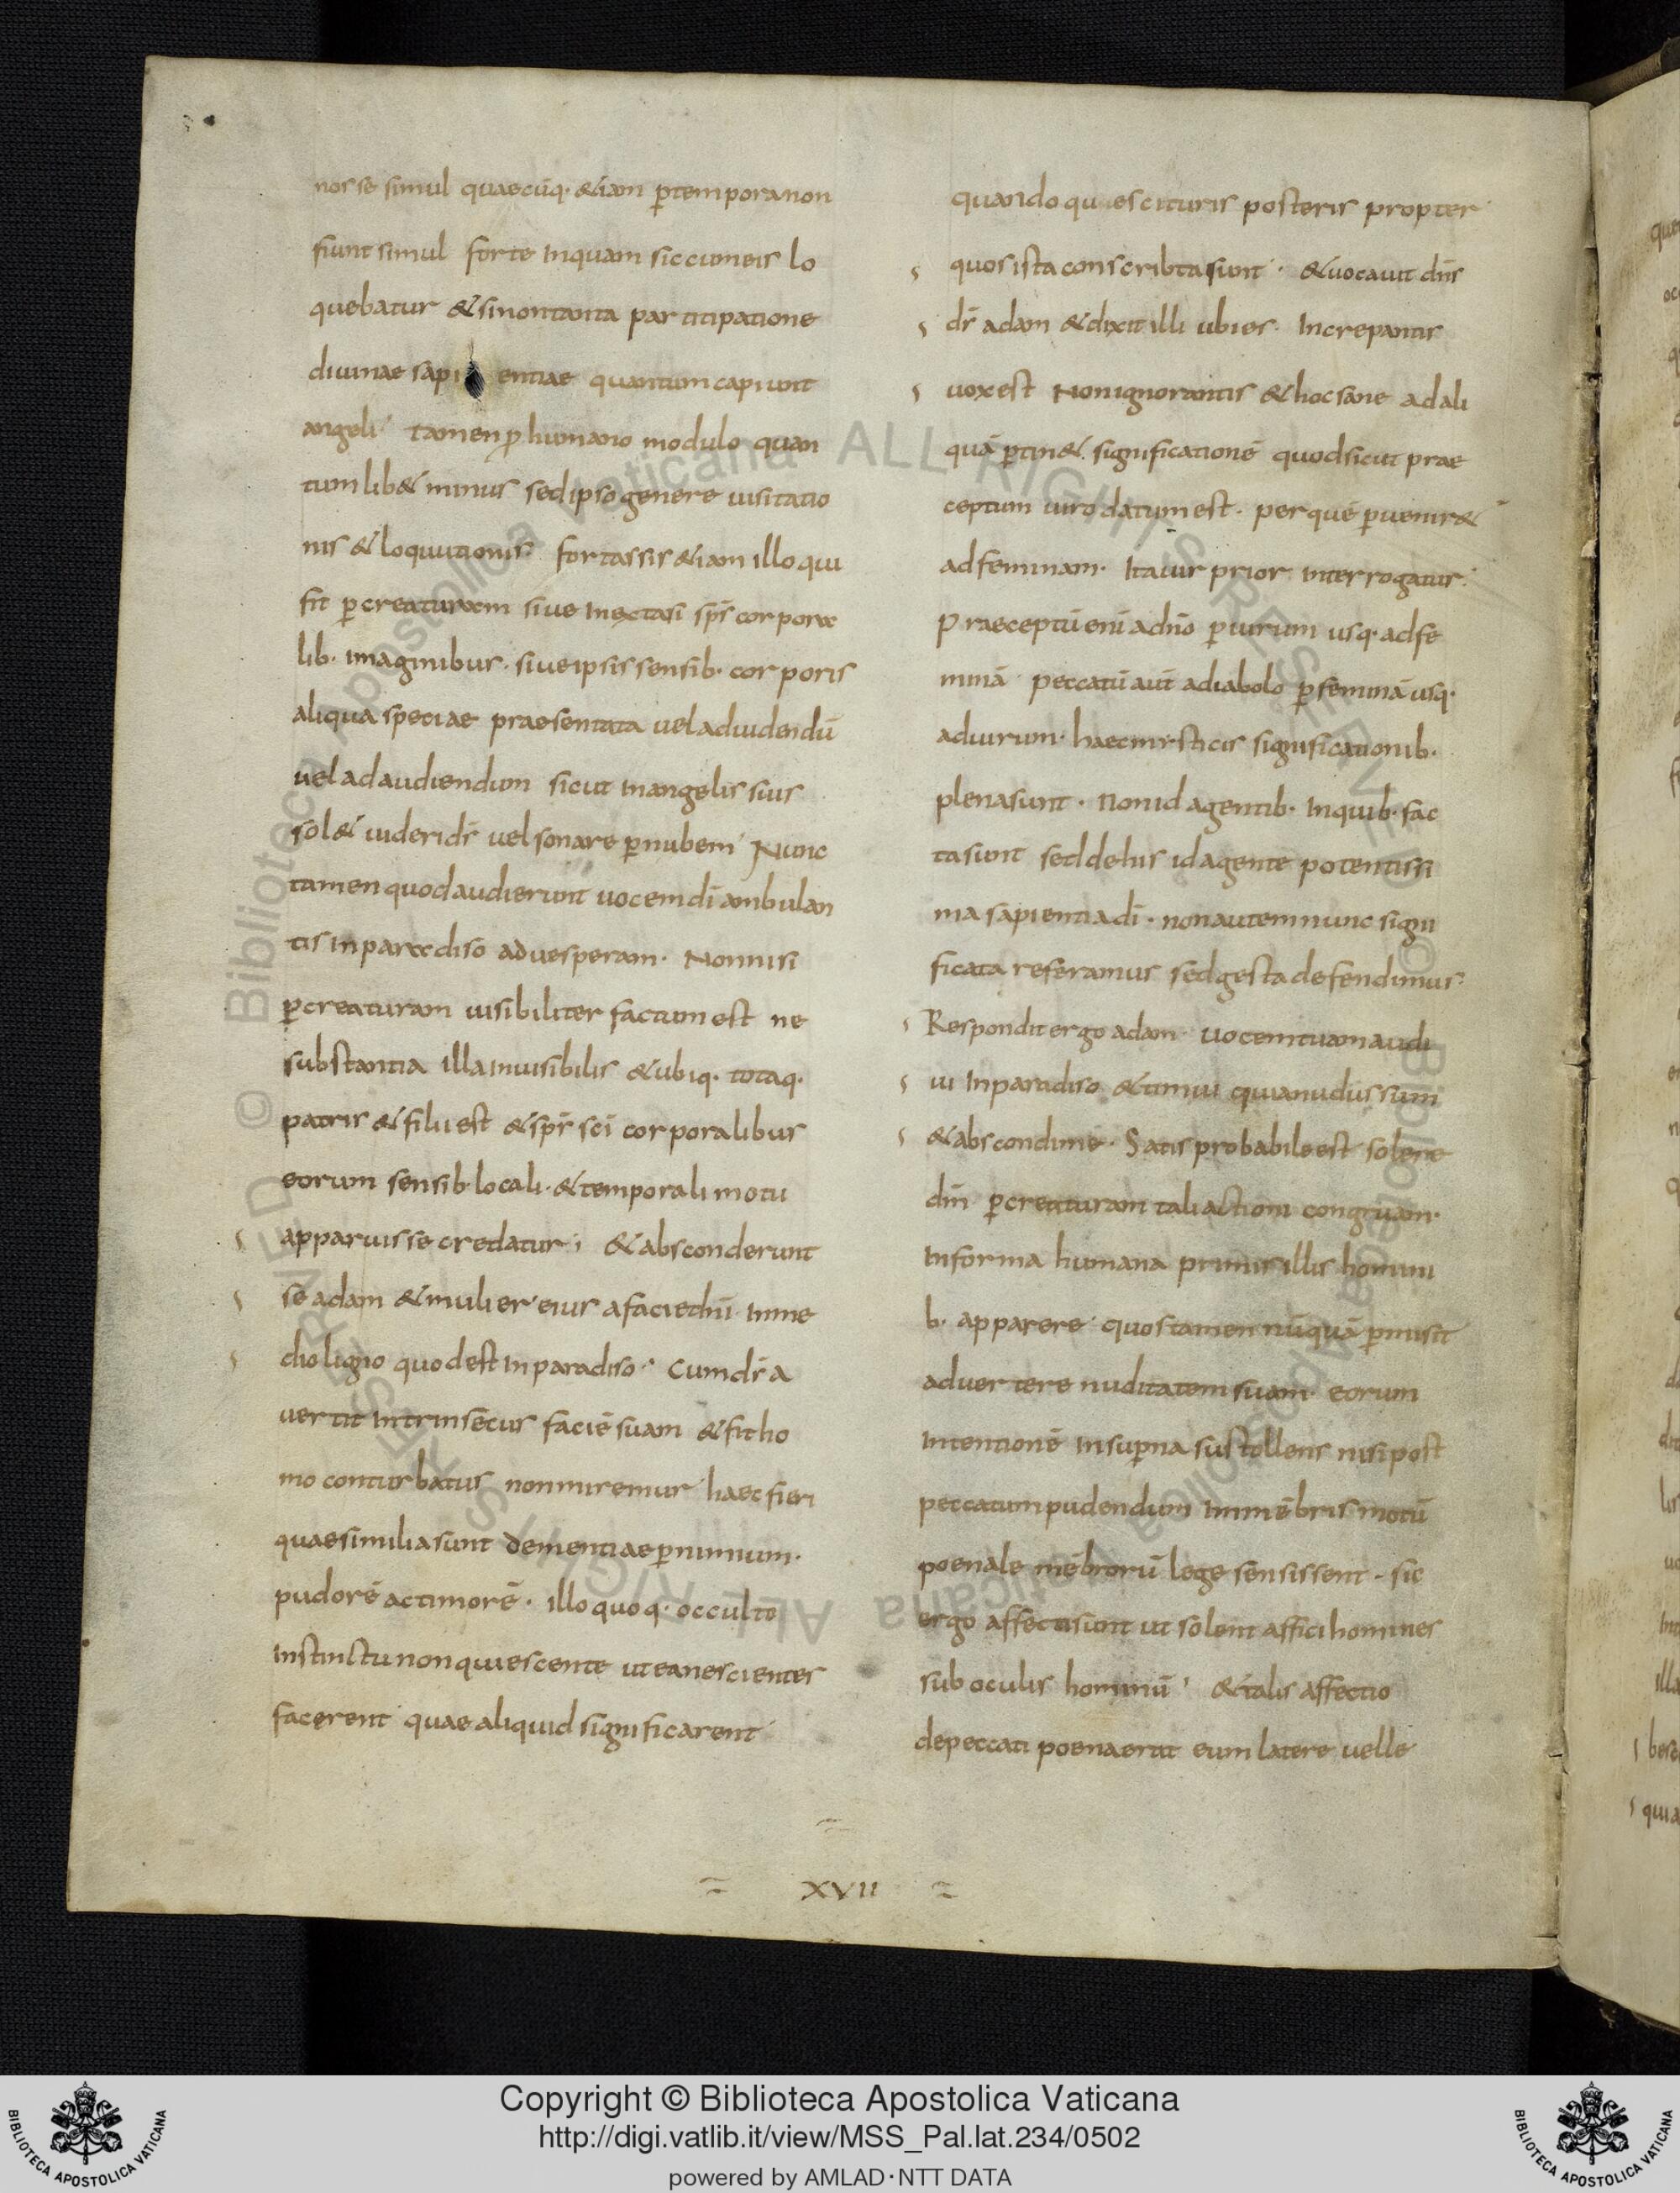 nosse simul quaecūq· &iam ꝑtempora non
fiunt simul forte inquam sic cum eis lo
quebatur & si non tanta participatione
diuinae sapi entiae quantum capiunt
angeli tamen ꝓ humano modulo quan
tum lib& minus sed ipso genere uisitatio
nis & loquutionis fortassis &iam illo qui
fit ꝑ creaturam siue in extasi sps̄ corpora
lib· imaginibus· siue ipsis sensib· corporis
aliqua speciae praesentata uel ad uidendū
uel ad audiendum sicut in angelis suis
sol& uideri ds̄ uel sonare ꝑ nubem Nunc
tamen quod audierunt uocem dī ambulan
tis in paradiso ad uesperam· Non nisi
ꝑ creaturam uisibiliter factum est ne
substantia illa inuisibilis & ubiq· totaq·
patris & filii est & sps̄ scī corporalibus
eorum sensib· locali· & temporali motu
apparuisse credatur; & absconderunt
se adam & mulier eius a facie dnī in me
dio ligno quod est in paradiso· Cum ds̄ a
uertit intrinsecus faciē suam & fit ho
mo conturbatus non miremur haec fieri
quae similia sunt dementiae ꝑ nimium·
pudorē ac timorē· illo quoq· occulto
instinctu non quiescente ut ea nescientes
facerent quae aliquid significarent
quando qu escituris posteris propter
quos ista conscribta sunt· & uocauit dn̄s
ds̄ adam & dixit illi ubi es· Increpantis
uox est Non ignorantis & hoc sane ad ali
quā ꝑtin& significationē quod sicut prae
ceptum uiro datum est· per quē ꝑuenir&
ad feminam· Ita uir prior interrogatur·
Praeceptū enī a dn̄o ꝑ uirum usq· ad fe
minā peccatū aūt a diabolo ꝑ feminā usq·
ad uirum· haec misticis significationib·
plena sunt· Non id agentib· in quib· fac
ta sunt sed de his id agente potentissi
ma sapientia dī· non autem nunc signi
ficata referamus sed gesta defendimus·
Respondit ergo adam uocem tuam audi
ui in paradiso & timui quia nudus sum
& abscondi mē· Satis probabile est solere
dm̄ ꝑ creaturam tali actioni congruam·
In forma humana primis illis homini
b· apparere quos tamen nūquā ꝑmisit
aduertere nuditatem suam eorum
intentionē in suꝑna sustollens nisi post
peccatum pudendum in mēbris motū
poenale mēbrorū lege sensissent· sic
ergo affecti sunt ut solent affici homines
sub oculis hominū & talis affectio
de peccati poena erat eum latere uelle
XVII
© Biblioteca Apostolica Vaticana ALL RIGHTS RESERVED © Biblioteca Apostolica Vaticana ALL RIGHTS RESERVED
Copyright © Biblioteca Apostolica Vaticana
http://digi.vatlib.it/view/MSS_Pal.lat.234/0502
powered by AMLAD·NTT DATA
BIBLIOTECA APOSTOLICA VATICANA
BIBLIOTECA APOSTOLICA VATICANA